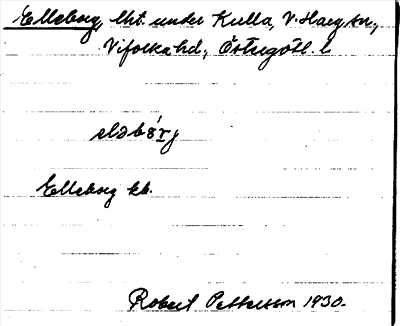 Elleborg, lht. under Kulla, V. Harg sn,
Vifolka hd, Östergötl. l
eləbór̤j
Elleborg kb.
Robert Pettersson 1930.